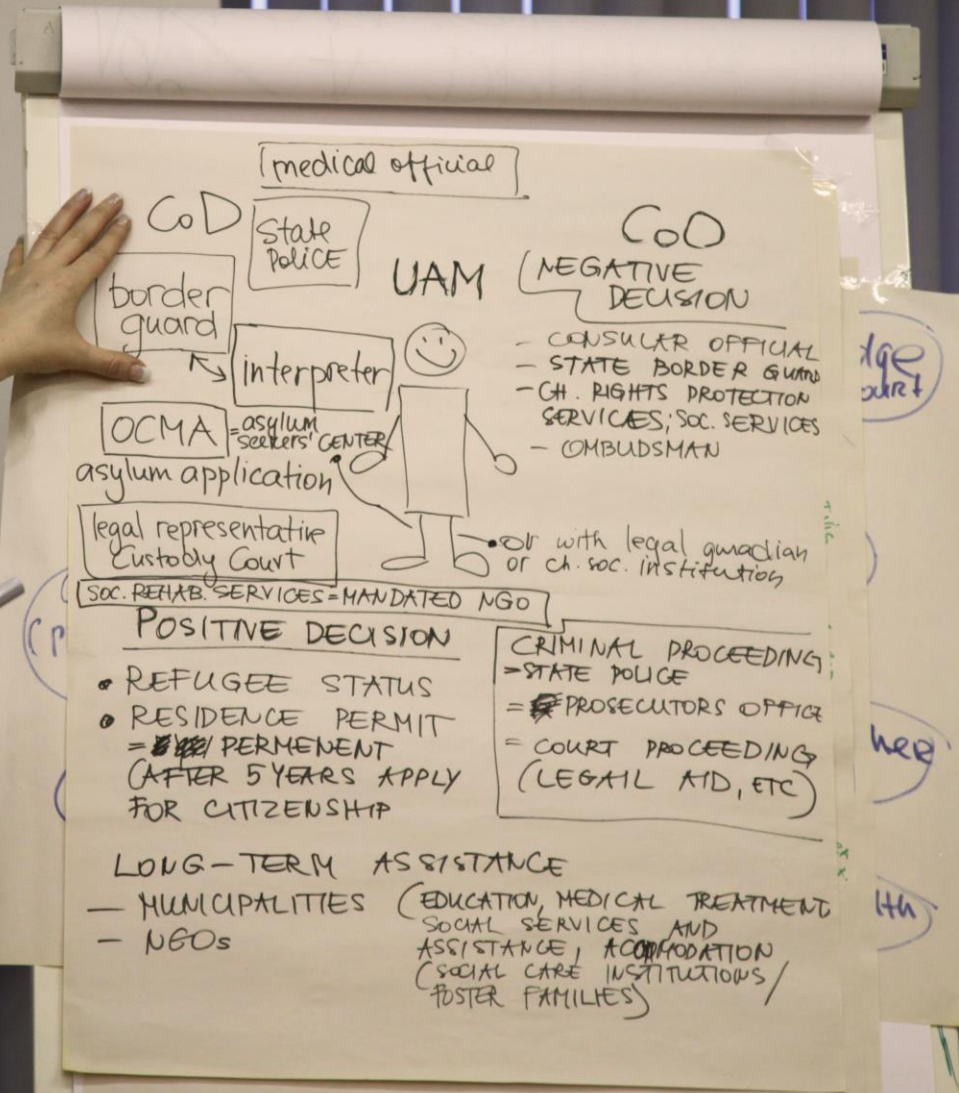 medical official
CoD
State
POLICE
border
guard
interpreter
OCMA = asylum
seekers' CENTER
asylum application
legal representative
Custody Court
SOC. REHAB. SERVICES = MANDATED NGO
UAM
CoO
NEGATIVE
DECISION
- CONSULAR OFFICIAL
- STATE BORDER GUARD
- CH. RIGHTS PROTECTION
SERVICES; SOC. SERVICES
- OMBUDSMAN
• or with legal guardian
or ch. soc. institution
POSITIVE DECISION
• REFUGEE STATUS
• RESIDENCE PERMIT
= PERMENENT
(AFTER 5 YEARS APPLY
FOR CITIZENSHIP
CRIMINAL PROCEEDING
= STATE POLICE
= PROSECUTORS OFFICE
= COURT PROCEEDING
(LEGAIL AID, ETC)
LONG-TERM ASSISTANCE
— MUNICIPALITIES (EDUCATION, MEDICAL TREATMENT
SOCIAL SERVICES AND
ASSISTANCE, ACOMODATION
(SOCIAL CARE INSTITUTIONS /
FOSTER FAMILIES)
— NGOs